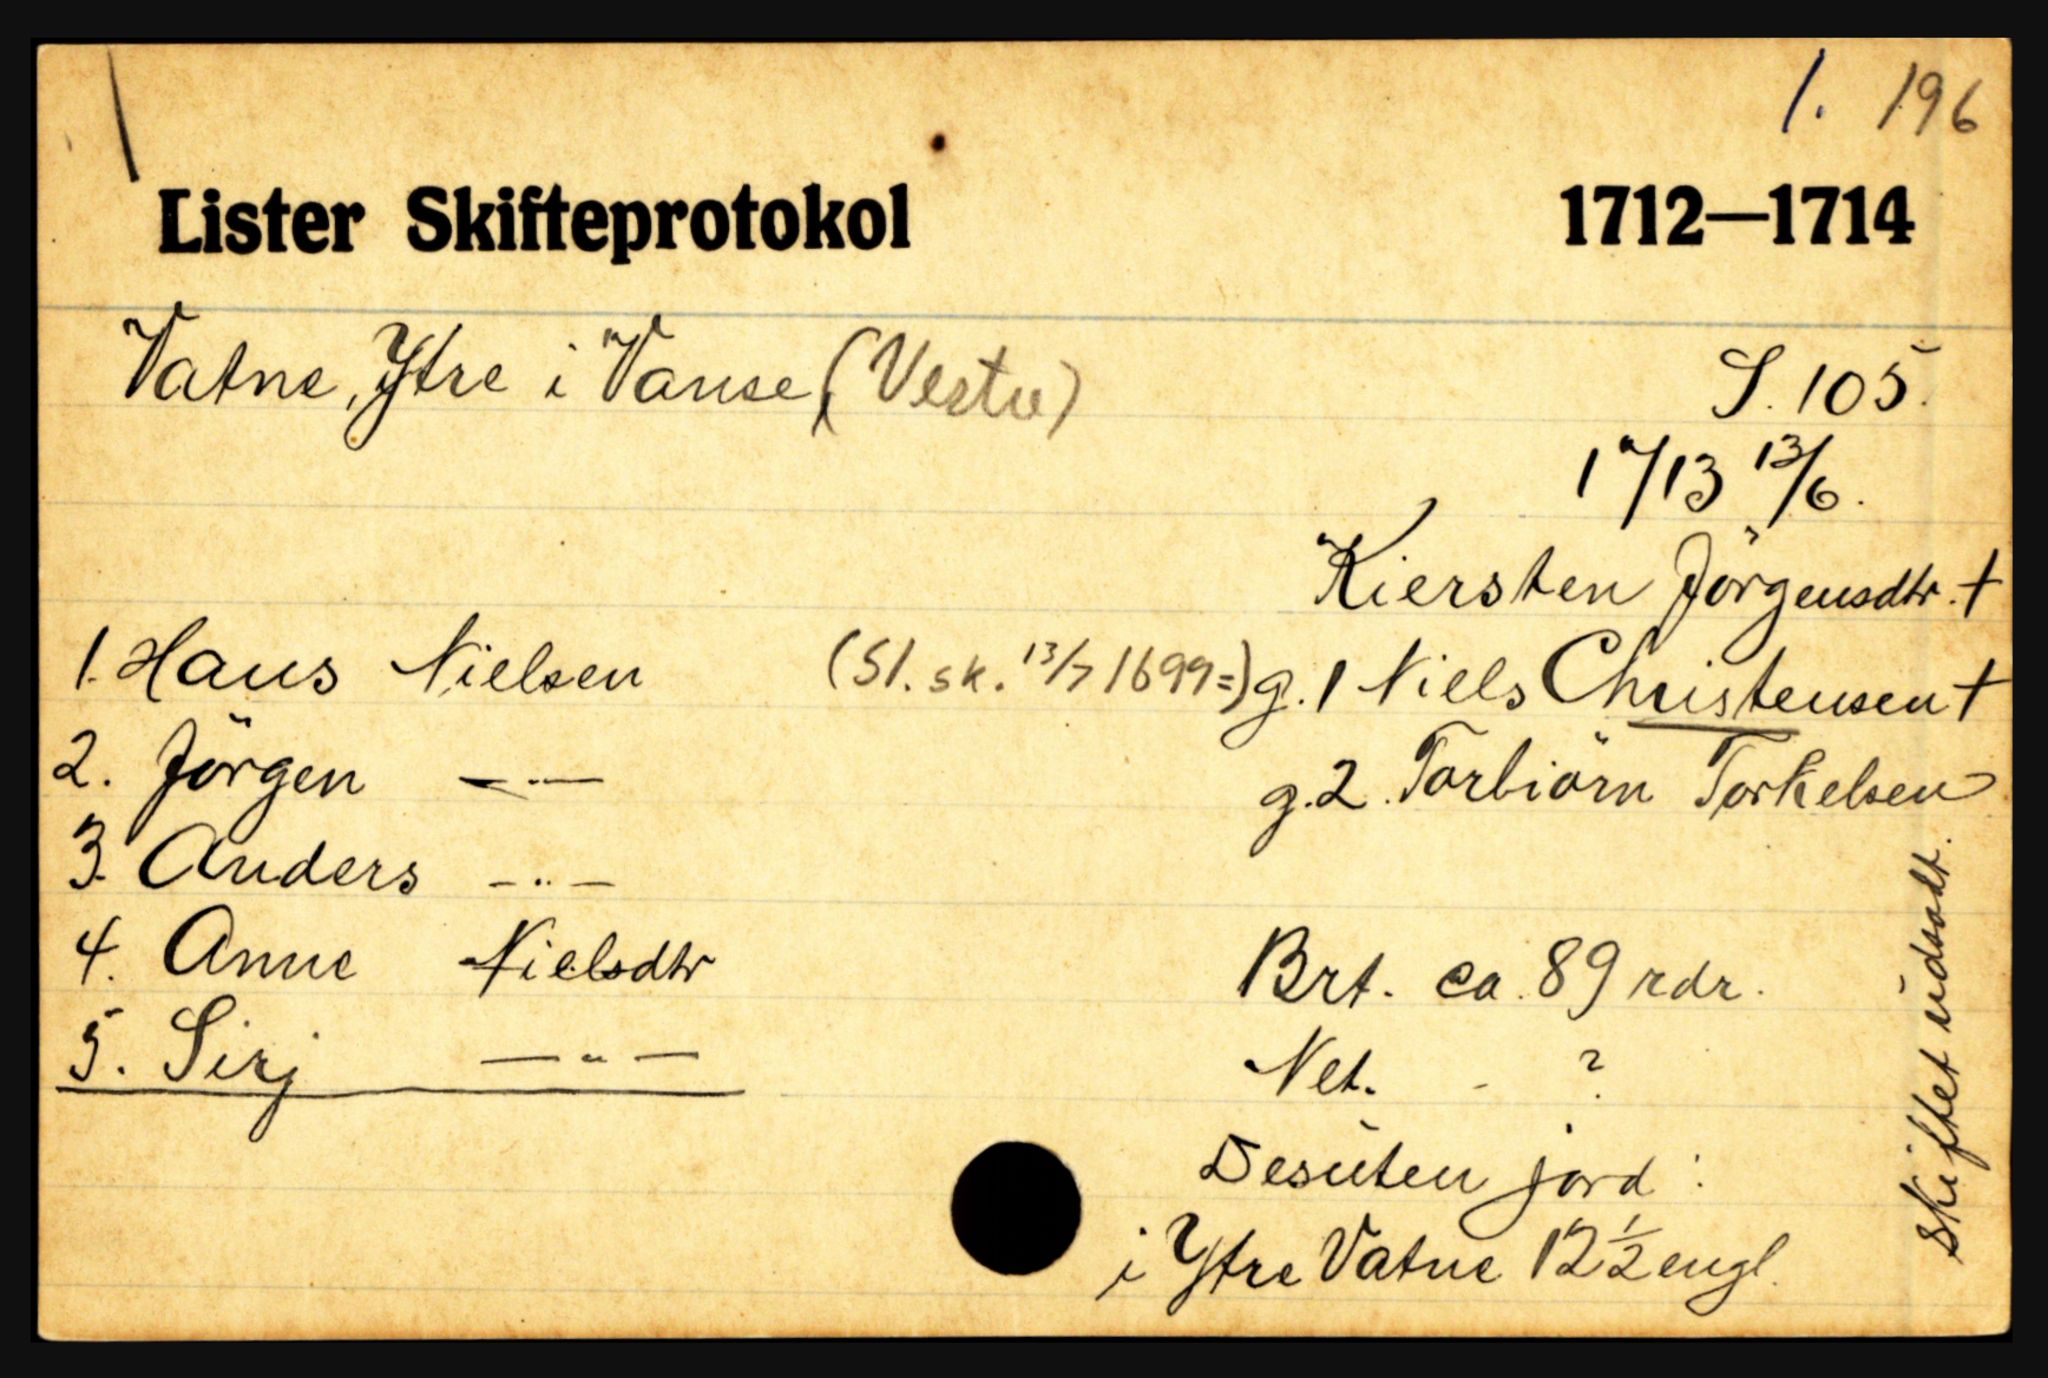 1. 196
Lister Skifteprotokol 1712—1714
Vatne, Ytre i Vanse, (Vestre) S. 105.
1713 13/6.
Kiersten Jörgensdtr. †
1. Hans Nielsen (Sl. sk. 13/7 1699=) g. 1 Niels Christensen †
2. Jörgen —"— g. 2. Torbiörn Torkelsen
3. Anders —"—
4. Anne Nielsdtr Brt. ca. 89 rdr.
5. Sirj —"— Net. - ?
Desuten jord:
i Ytre Vatne 12 1/2 engl.
skiftet udsadt.